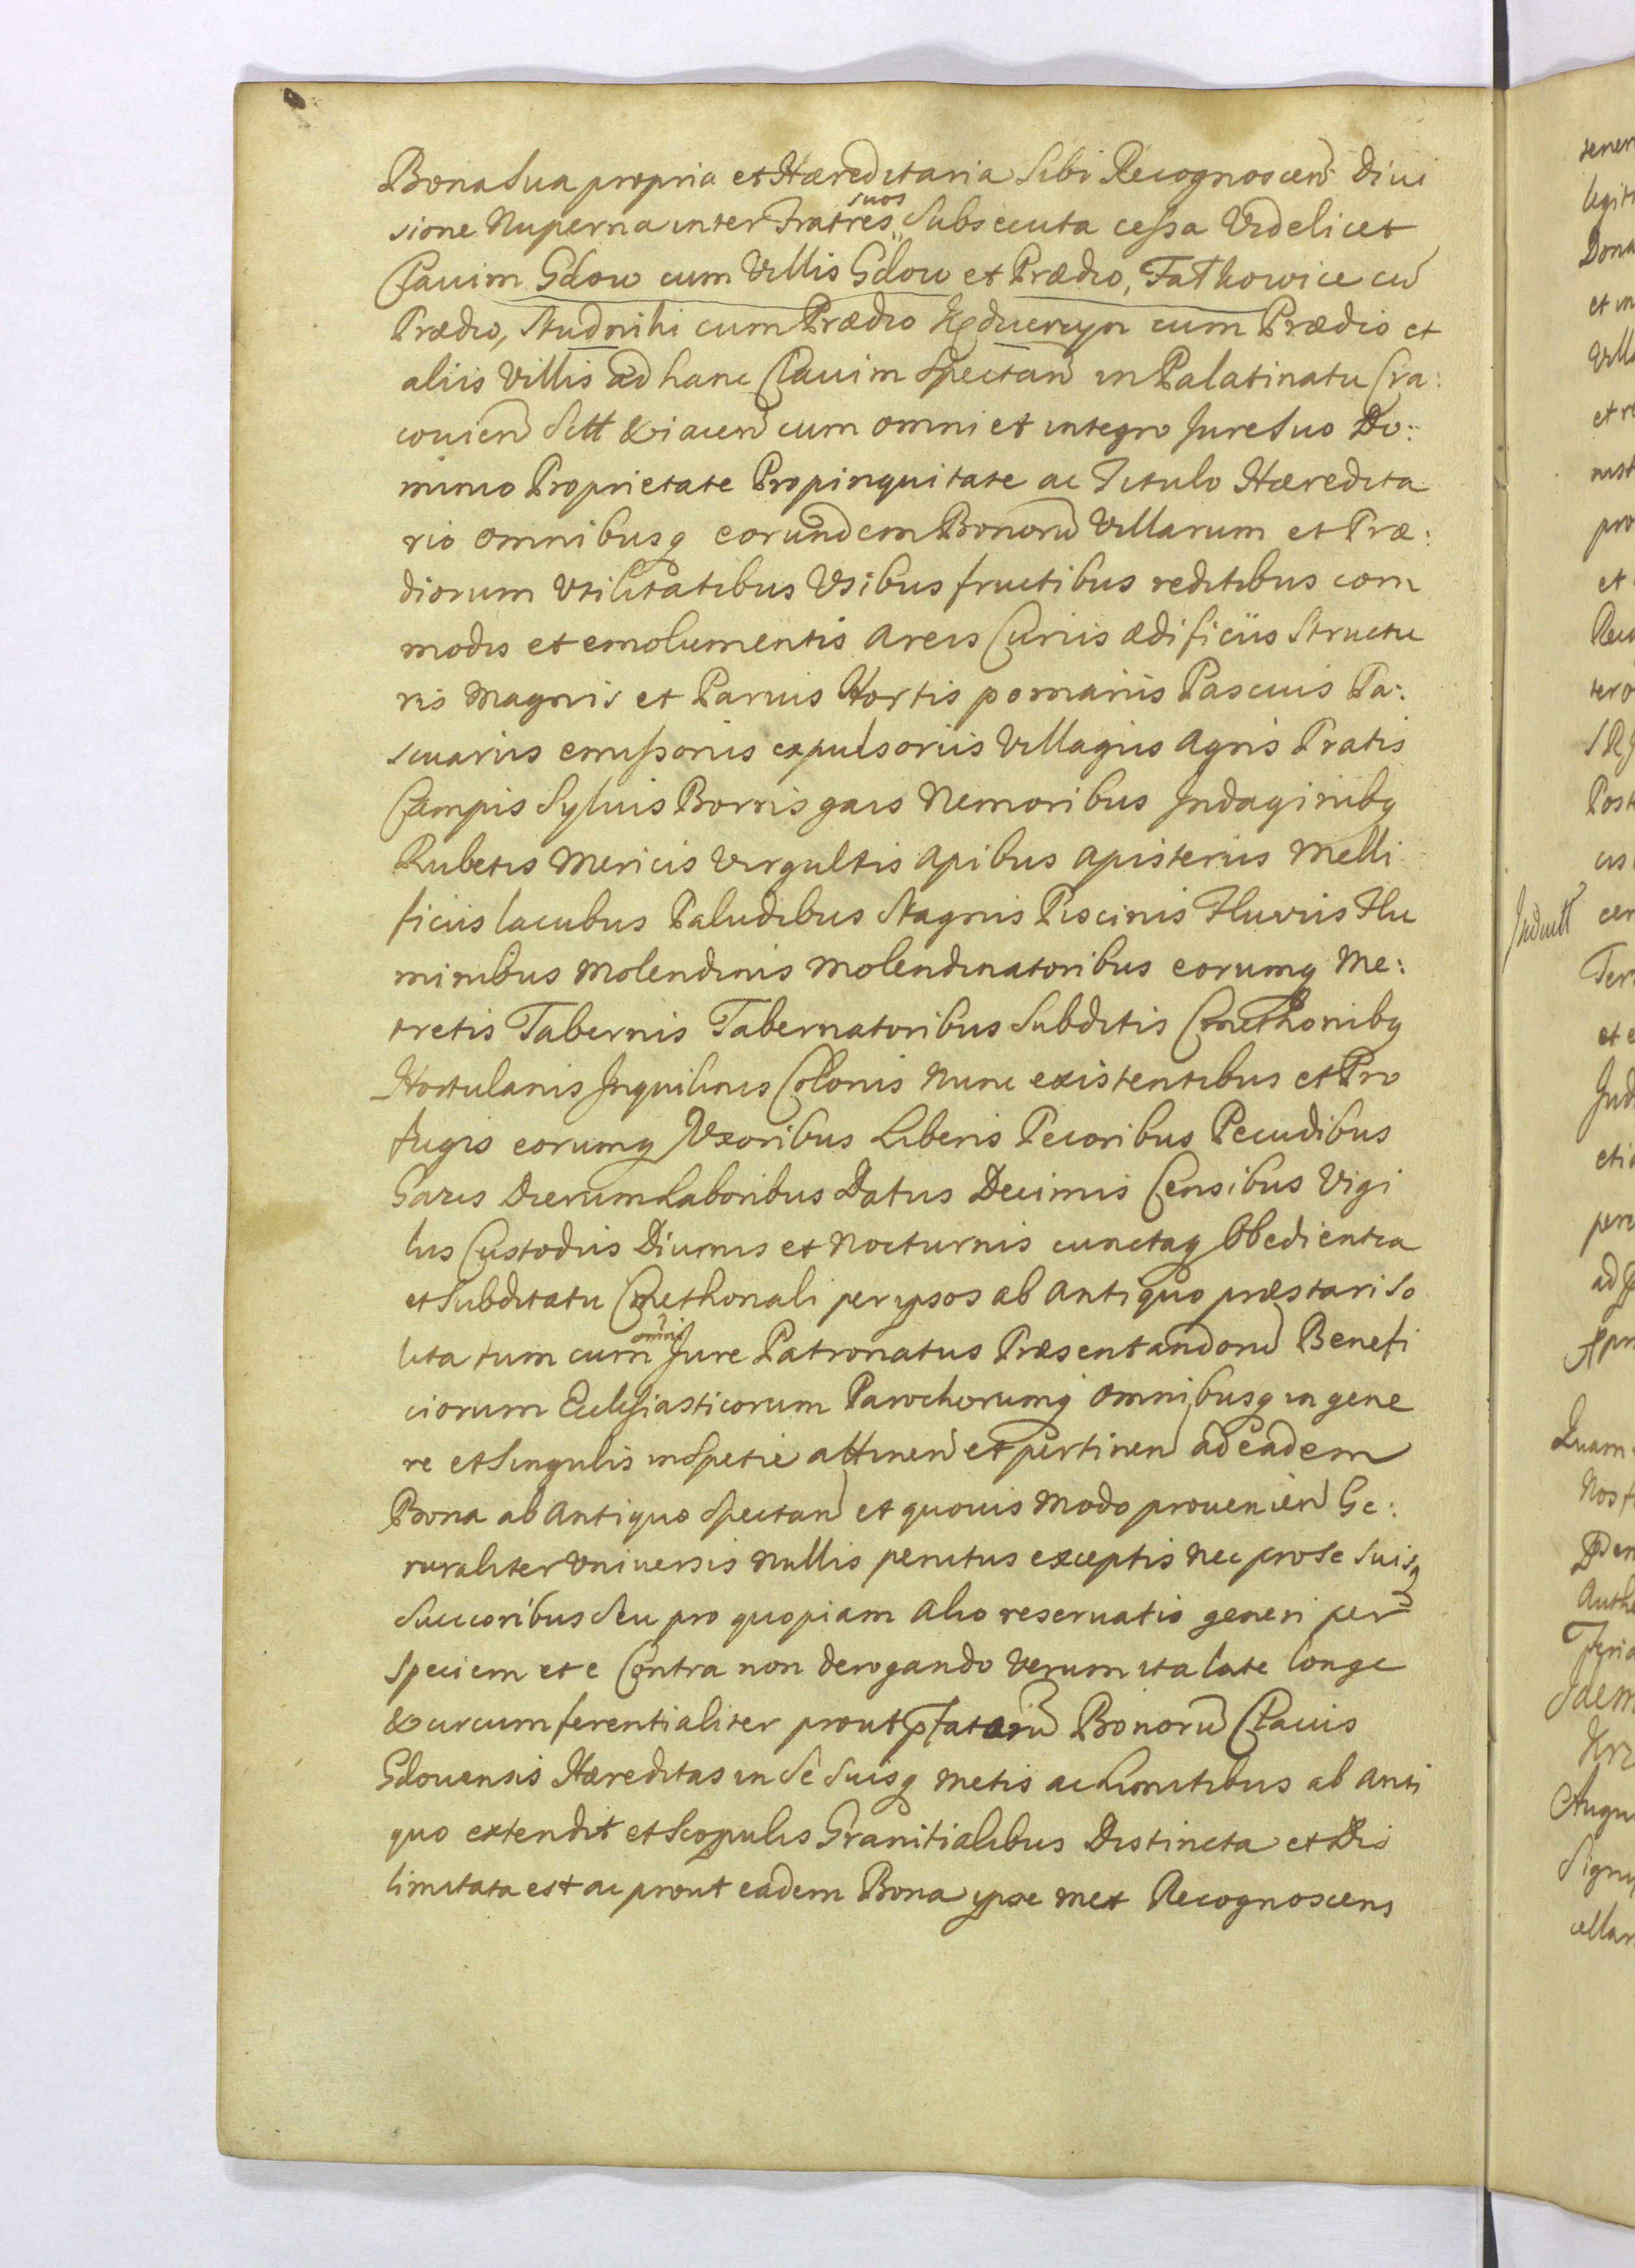 Bona Sua propria et Hæreditaria Sibi Recognoscen Divi
sione Nuperna inter Fratres suos Subsecuta cessa Videlicet
Clavim Gdow cum Villis Gdow et Prædio, Fałkowice cu
Prædio, Studniki cum Prædio cum Prædio et
aliis Villis ad hanc Clavim Spectan in Palatinatu Cra:
covien Sitt & iacen cum omni et integro Jure Suo Do:
minio Proprietate Propinquitate ac Titulo Hæredita
rio omnibusq eorundem Bonoru Villarum et Præ:
diorum Utilitatibus Usibus fructibus reditibus com
modis et emolumentis Areis Curiis ædificiis Structu
ris Magnis et Parvis Hortis pomariis Pascuis Pa:
scuariis emissoriis expulsoriis Villagiis Agris Pratis
Campis Sylvis Borris gais Nemoribus Indaginibq
Rubetis Mericis Virgultis Apibus Apisteriis Melli
ficiis lacubus Paludibus Stagnis Piscinis Fluviis Flu
minibus Molendinis Molendinatoribus eorumq Me:
tretis Tabernis Tabernatoribus Subditis Cmethonibq
Hortulanis Inquilinis Colonis Nunc existentibus et Pro
fugis eorumq Uxoribus Liberis Pecoribus Pecudibus
Gazis Dierum Laboribus Datiis Decimis Censibus Vigi
liis Custodiis Diurnis et Nocturnis cunctaq Obedientia
et Subditatu Cmethonali per ipsos ab antiquo præstari So
lita tum cum omni Jure Patronatus Præsentandoru Benefi
ciorum Ecclesiasticorum Parochorumq omnibusq in gene
re et Singulis in Spetie attinen et pertinen ad eadem
Bona ab antiquo Spectan et quovis Modo provenien Ge:
neraliter Universis Nullis penitus exceptis Nec pro Se Suisq
Succoribus Seu pro quopiam Alio reservatis generi per
Speciem et e Contra non derogando Verum ita late longe
& circumferentialiter prout pfatoru Bonoru Clavis
Gdoviensis Hæreditas in Se Suisq Metis ac Limitibus ab anti
quo extendit et Scopulis Granitialibus Distincta et Dis
limitata est ac prout eadem Bona ipse met Recognoscens
Induct